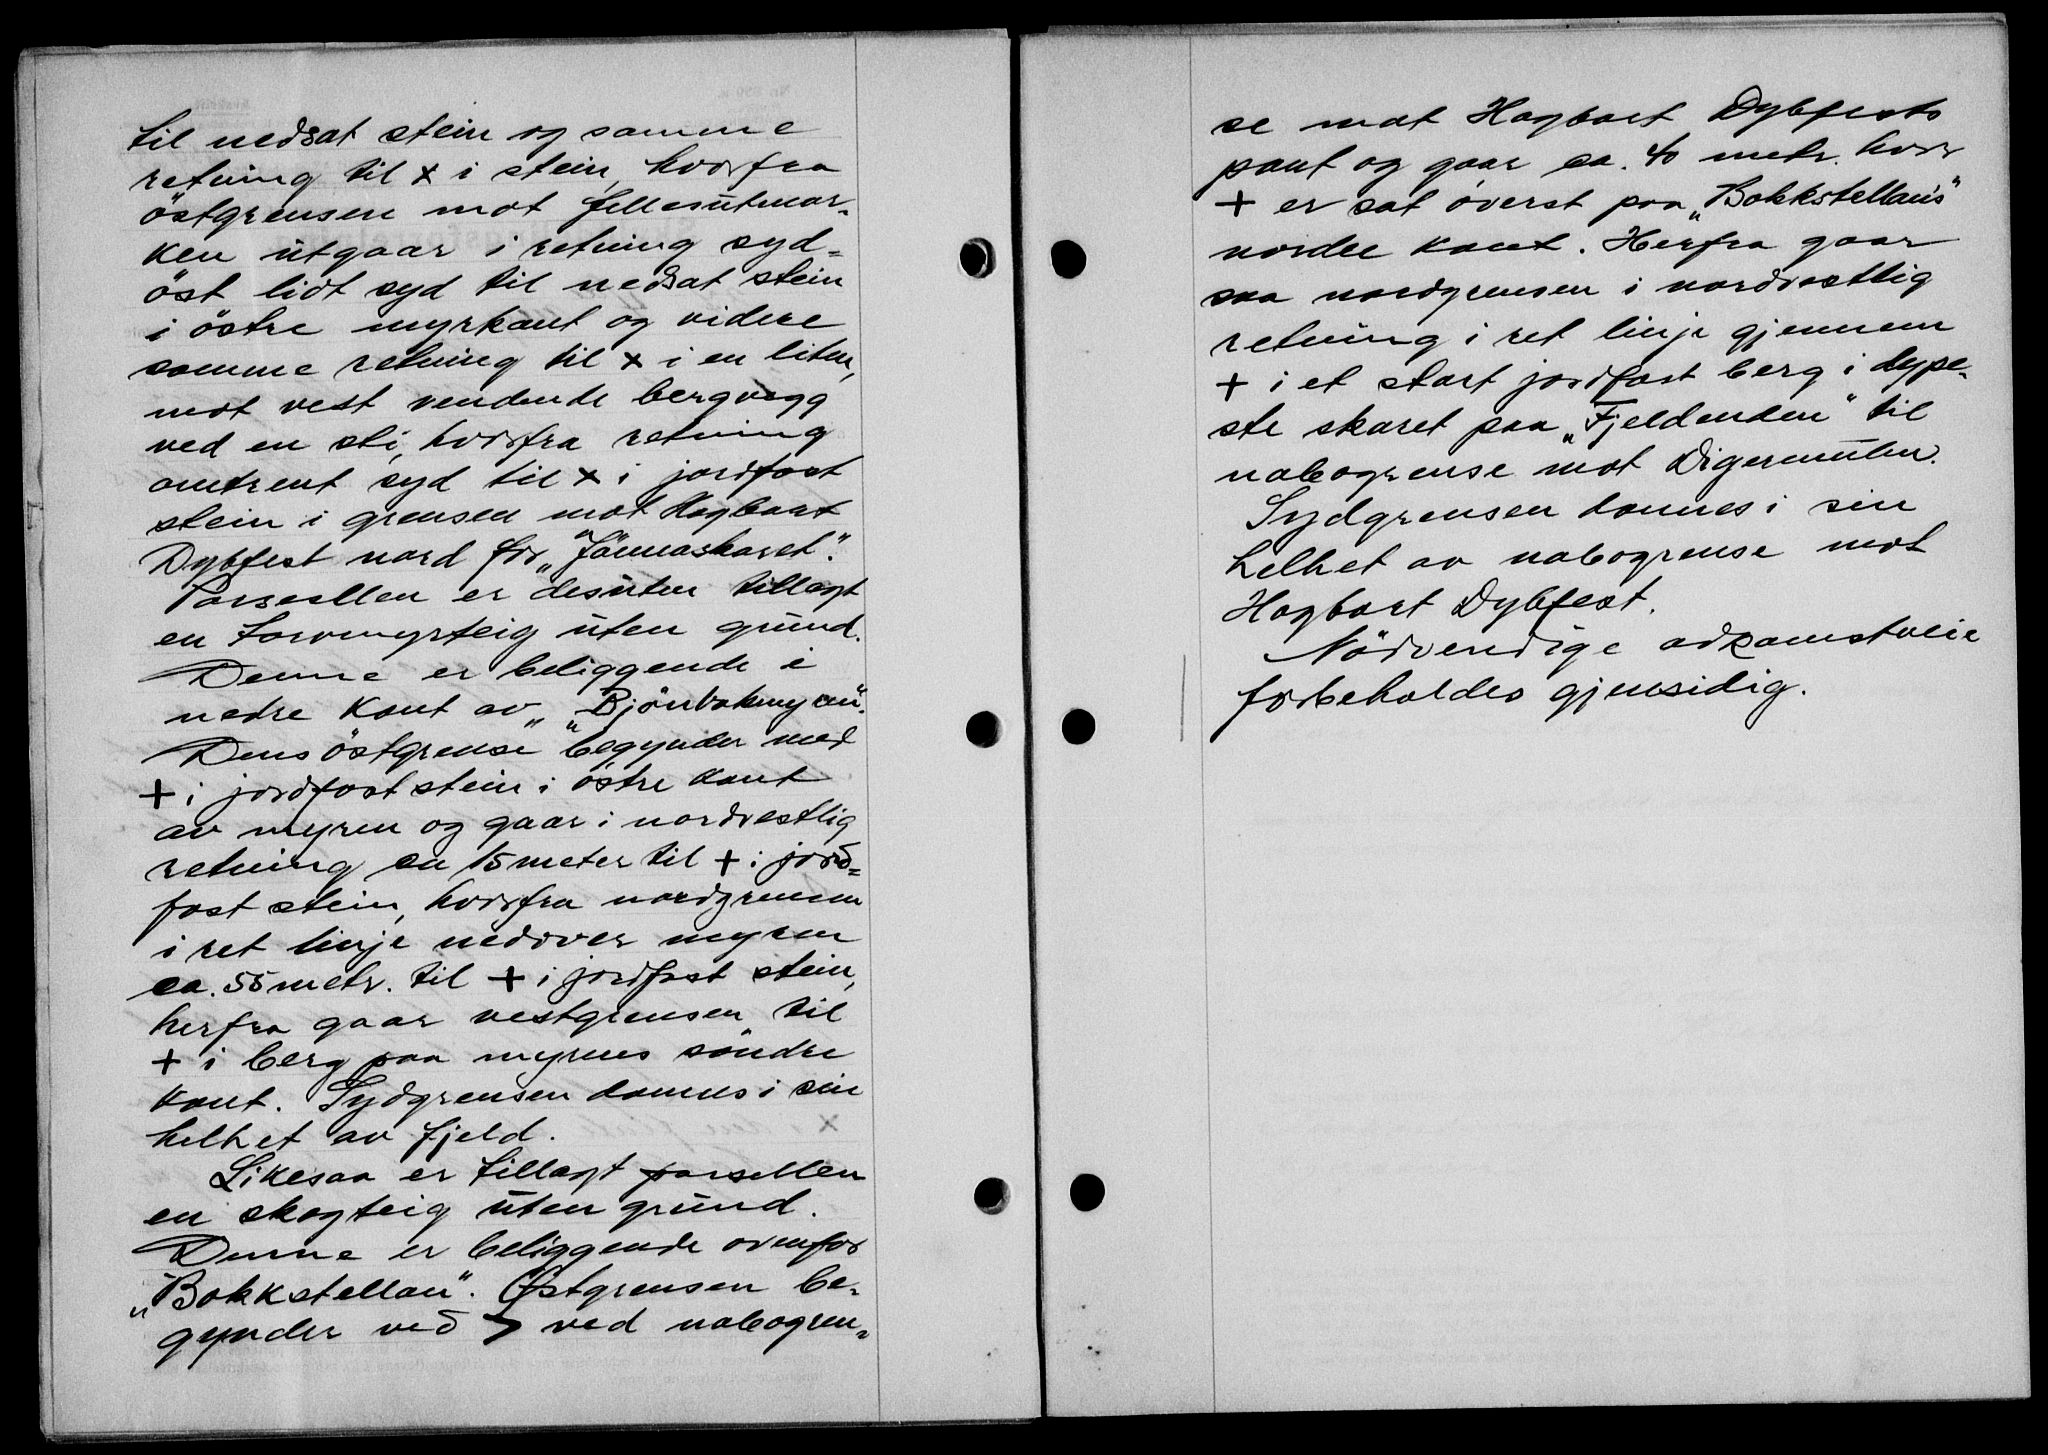 til nedsat stein og samme
retning til x i stein, hvorfra
östgrensen mot fellesutmar-
ken utgaar i retning syd-
öst lidt syd til nedsat stein
i östre myrkant og videre
samme retning til x i en liten,
mot vest vendende bergvegg
ved en sti, hvorfra retning
omtrent syd til x i jordfast
stein i grensen mot Hagbart
Dybfest nord for „Jönnaskaret".
Parsellen er desuten tillagt
en torvmyrteig uten grund.
Denne er beliggende i
nedre kant av „Björnbakmyren".
Dens östgrense begynder med
+ i jordfast stein i östre kant
av myren og gaar i nordvestlig
retning ca 15 meter til + i jord-
fast stein, hvorfra nordgrensen
i ret linje nedover myren
ca. 55 metr. til + i jordfast stein,
herfra gaar vestgrensen til
+ i berg paa myrens söndre
kant. Sydgrensen dannes i sin
helhet av fjeld.
Likesaa er tillagt parsellen
en skogteig uten grund.
Denne er beliggende ovenfor
„Bokkstellan". Østgrensen be-
gynder ved ved nabogren-
se mot Hagbart Dybfests
pant og gaar ca. 40 metr. hvor
+ er sat överst paa „Bokkstellans"
nordre kant. Herfra gaar
saa nordgrensen i nordvestlig
retning i ret linje gjennem
+ i et stort jordfast berg i dype-
ste skaret paa „Fjeldenden" til
nabogrense mot Digermulen.
Sydgrensen dannes i sin
helhet av nabogrense mot
Hagbart Dybfest.
Nödvendige adkomstveie
forbeholdes gjensidig.